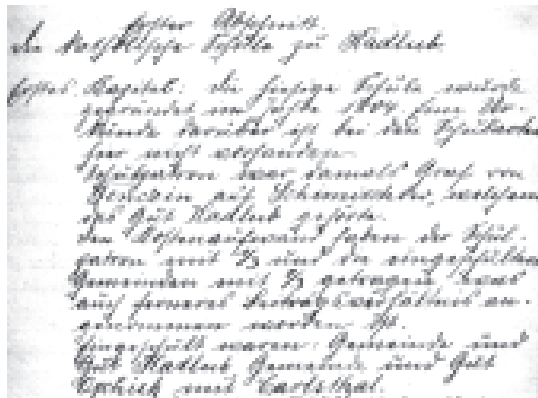 Erster Abschnitt.
Die Katholische Schule zu Kadlub.
Erstes Kapitel: Die hiesige Schule wurde
gegründet im Jahre 1804. Eine Ur-
kunde darüber ist bei den Schulakten
hier nicht vorhanden.
Schulpatron war damals Graf von
auf Schimischow, welchem
das Gut Kadlub gehörte.
Den Kostenaufwand haben der Schul-
patron mit 1/3 und die eingeschulten
Gemeinden mit 2/3 getragen, was
auch ferneres an-
genommen worden ist.
Eingeschult waren: Gemeinde und
Gut Kadlub, Gemeinde und Gut
mit Carlsthal.